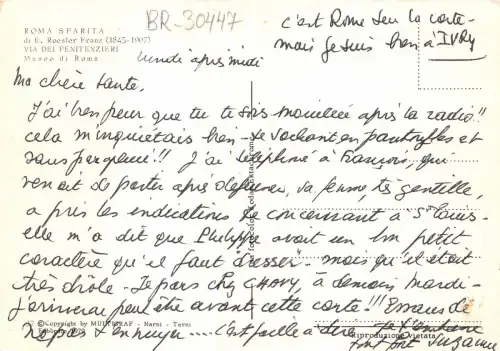 BR-30447
ROMA SPARITA
di E. Roesler Franz (1845-1907)
VIA DEI PENITENZIERI
Museo di Roma
c'est Rome sur la carte-
mais je suis bien à IVRY
lundi après midi
Ma chère tante,
J'ai bien peur que tu te sois mouillée après la radio!!
cela m'inquiétais bien - te sachant en pantoufles et
sans parapluie!! J'ai téléphoné à François, qui
venait de partir après déjeuner, sa femme, très gentille,
a pris les indications te concernant à St Louis-
elle m'a dit que Philippe avait un bon petit
caractère qu'il faut dresser - mais qu'il était
très drôle - Je pars chez CHAVY, à demain mardi-
j'arriverai peut être avant cette carte!!! Essaies de
ne pas t'ennuyer.... c'est facile à dire
© Copyright by MULTIGRAF - Narni - Terni
Riproduzione vietata
Suzanne